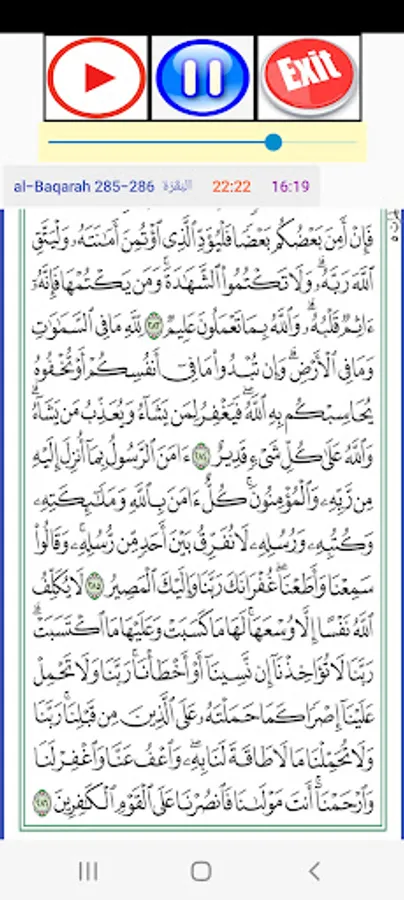 Exit
al-Baqarah 285-286 البقرة 22:22 16:19
فَإِنْ أَمِنَ بَعْضُكُم بَعْضًا فَلْيُؤَدِّ الَّذِي اؤْتُمِنَ أَمَانَتَهُ وَلْيَتَّقِ
اللَّهَ رَبَّهُ وَلَا تَكْتُمُوا الشَّهَادَةَ وَمَن يَكْتُمْهَا فَإِنَّهُ
ءَاثِمٌ قَلْبُهُ وَاللَّهُ بِمَا تَعْمَلُونَ عَلِيمٌ ٢٨٣ لِّلَّهِ مَا فِي السَّمَاوَاتِ
وَمَا فِي الْأَرْضِ وَإِن تُبْدُوا مَا فِي أَنفُسِكُمْ أَوْ تُخْفُوهُ
يُحَاسِبْكُم بِهِ اللَّهُ فَيَغْفِرُ لِمَن يَشَاءُ وَيُعَذِّبُ مَن يَشَاءُ
وَاللَّهُ عَلَى كُلِّ شَيْءٍ قَدِيرٌ ٢٨٤ ءَامَنَ الرَّسُولُ بِمَا أُنزِلَ إِلَيْهِ
مِن رَّبِّهِ وَالْمُؤْمِنُونَ كُلٌّ ءَامَنَ بِاللَّهِ وَمَلَائِكَتِهِ
وَكُتُبِهِ وَرُسُلِهِ لَا نُفَرِّقُ بَيْنَ أَحَدٍ مِّن رُّسُلِهِ وَقَالُوا
سَمِعْنَا وَأَطَعْنَا غُفْرَانَكَ رَبَّنَا وَإِلَيْكَ الْمَصِيرُ ٢٨٥ لَا يُكَلِّفُ
اللَّهُ نَفْسًا إِلَّا وُسْعَهَا لَهَا مَا كَسَبَتْ وَعَلَيْهَا مَا اكْتَسَبَتْ
رَبَّنَا لَا تُؤَاخِذْنَا إِن نَّسِينَا أَوْ أَخْطَأْنَا رَبَّنَا وَلَا تَحْمِلْ
عَلَيْنَا إِصْرًا كَمَا حَمَلْتَهُ عَلَى الَّذِينَ مِن قَبْلِنَا رَبَّنَا
وَلَا تُحَمِّلْنَا مَا لَا طَاقَةَ لَنَا بِهِ وَاعْفُ عَنَّا وَاغْفِرْ لَنَا
وَارْحَمْنَا أَنتَ مَوْلَانَا فَانصُرْنَا عَلَى الْقَوْمِ الْكَافِرِينَ ٢٨٦